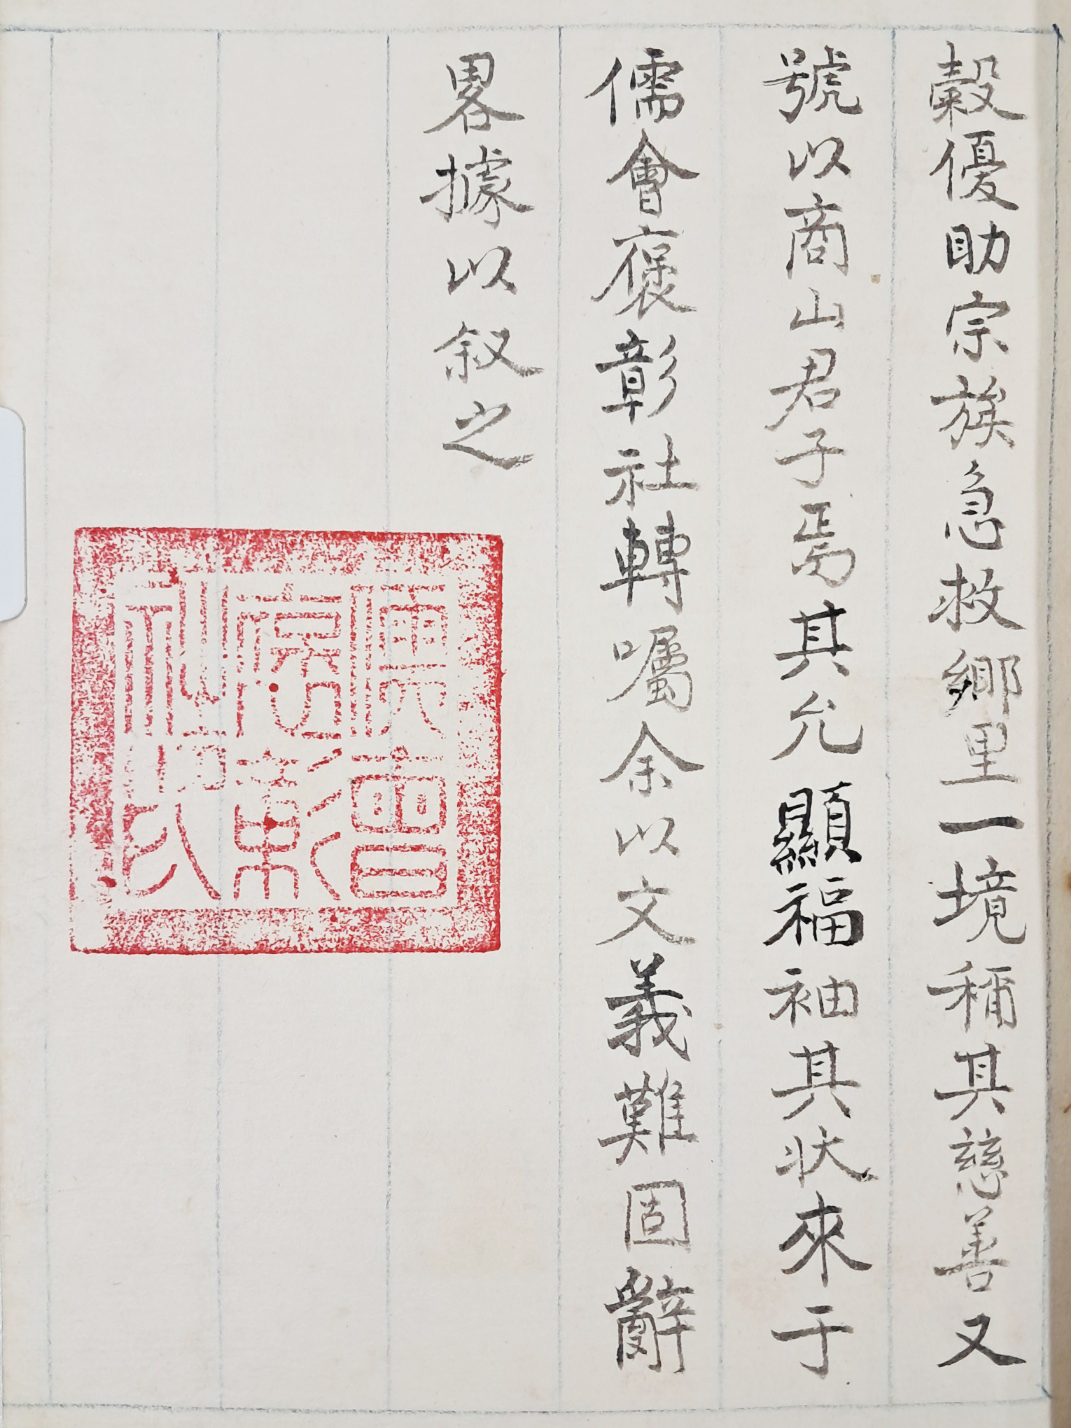 穀優助宗族急救鄉里一境稱其慈善又
號以商山君子焉其允顯福袖其狀來于
儒會褒彰社轉囑余以文義難固辭
畧據以叙之
儒會
褒彰
社